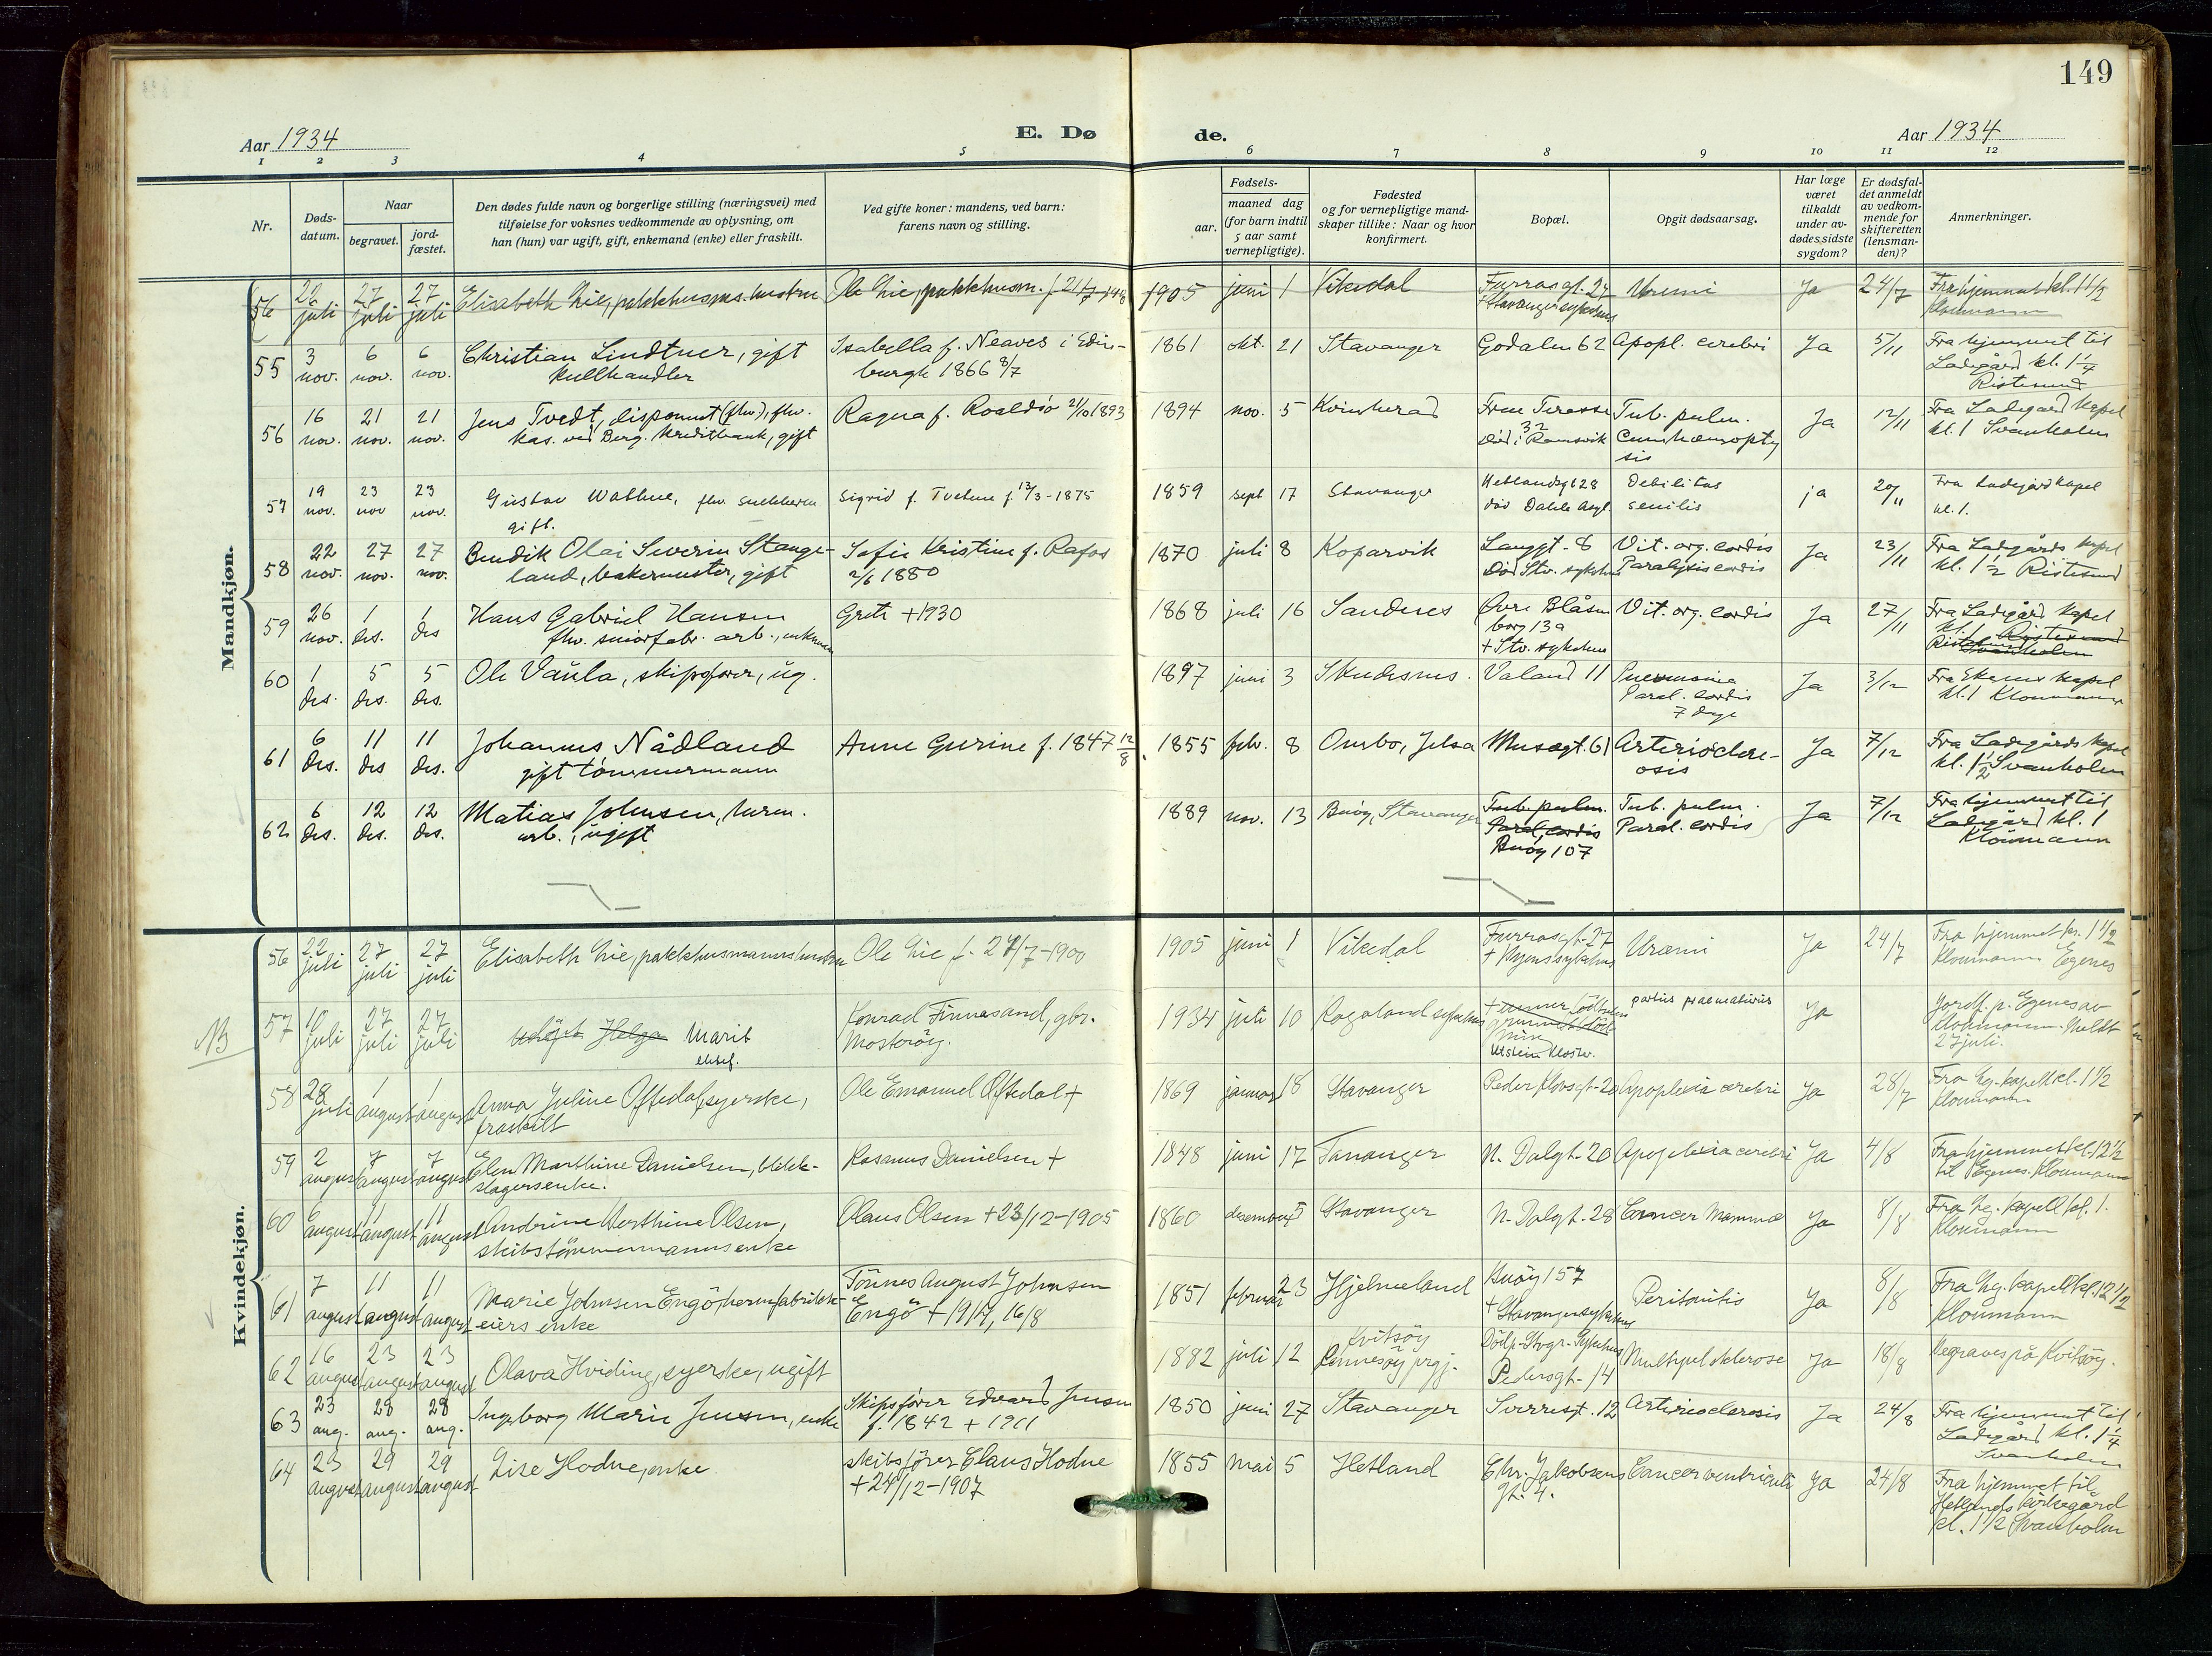 149
Aar 1934
E. Dø de.
Aar 1934
1 2 3 4 5 6 7 8 9 10 11 12
Nr.
Døds-
datum.
Naar
begravet.
jord-
fæstet.
Den dødes fulde navn og borgerlige stilling (næringsvei) med
tilføielse for voksnes vedkommende av oplysning, om
han (hun) var ugift, gift, enkemand (enke) eller fraskilt.
Ved gifte koner: mandens, ved barn:
farens navn og stilling.
Fødsels-
aar.
maaned dag
(for barn indtil
5 aar samt
vernepligtige).
Fødested
og for vernepligtige mand-
skaper tillike: Naar og hvor
konfirmert.
Bopæl.
Opgit dødsaarsag.
Har læge
været
tilkaldt
under av-
dødes sidste
sygdom?
Er dødsfal-
det anmeldt
av vedkom-
mende for
skifteretten
(lensman-
den)?
Anmerkninger.
Mandkjøn.
56 22 juli 27 juli 27 juli Elisabeth Lie, pakkhusms. hustru Ole Lie, pakkhusm. 1905 juni 1 Vikedal Furrasgt. 27 + Stavanger sykehus Uremi Ja 24/7 Fra hjemmet kl. 1 1/2 Kloumann
55 3 nov. 6 nov. 6 nov. Christian Lindtner, gift kullhandler Isabella f. Neaves i Edin-burgh 1866 8/7 1861 okt. 21 Stavanger Godalen 62 Apopl. cerebri Ja 5/11 Fra hjemmet til Ladegård kl. 1 1/4 Ristesund
56 16 nov. 21 nov. 21 nov. Jens Tvedt, disponent (fhv.), fhv. kas. ved Berg. Kreditbank, gift Ragna f. Roaldsö 21/10 1893 1894 nov. 5 Kvinherad Frue Terasse 32 Död i Ramsvik Tub. pulm. cum hæmopty sis Ja 17/11 Fra Ladegård kapel kl. 1 Svanholm
57 19 nov. 23 nov 23 nov. Gustav Wathne, fhv. snekkerm gift. Sigrid f. Tveterne f. 13/3-1875 1859 sept 17 Stavanger Hetlandsgt 28 död Dahle Asyl. Debilitas senilis ja 20/11 Fra Ladegård kapel kl. 1.
58 22 nov. 27 nov. 27 nov. Bendik Olai Severin Stange-land, bakermester, gift Sofie Kristine f. Rafos 2/6 1880 1870 juli 8 Koparvik Langgt. 8 Död Stv. sykehus Vit. org. cordis Paralysis cordis Ja 23/11 Fra Ladegårds kapel kl. 1 1/2 Ristesund
59 26 nov. 1 des. 1 des Hans Gabriel Hansen fhv. smörfabr. arb., enkem Grete +1930 1868 juli 16 Sandnes Övre Blåsen borg 13a + Stv. sykehus Vit. org. cordis Ja 27/11 Fra Ladegård kapel kl. 1 Ristesund Svanholm
60 1 des. 5 des. 5 des. Ole Vaula, skipsförer, ug. 1897 juni 3 Skudesnes. Valand 11 Pneumonia Paral. cordis 7 dage Ja 3/12 Fra Egenes kapel kl. 1 Kloumann
61 6 des. 11 des 11 des. Johannes Nådland gift tömmermann Anne Gurine f. 1847 12/8 1855 febr. 8 Ombo, Jelsa Musegt. 61 Arterioscler-osis Ja 7/12 Fra Ladegårds kapel kl. 1 1/2 Svanholm
62 6 des. 12 des. 12 des. Matias Johnsen, herm. arb., ugift 1889 nov. 13 Buöy, Stavanger Tub. pulm. Paral. cordis Buöy 107 Tub. pulm. Paral. cordis Ja 7/12 Fra hjemmet til Ladegård kl. 1 Kloumann
Kvindekjøn.
56 22 juli 27 juli 27 juli Elisabeth Lie, pakkhusmannshustru Ole Lie f. 27/7-1900 1905 juni 1 Vikedal Furrasgt. 27 Uræmi Ja 24/7 Fra hjemmet kl. 1 1/2 Kloumann Egenes
NB
57 10 juli 27 juli 27 juli udöpt Helga Marit Konrad Finnesand, gbr. Mosteröy. 1934 juli 10 Rogaland sykehus Utstein Kloster. partus praematurus Ja Jordf. p. Egenes av Kloumann. Meldt 27 juli.
58 28 juli 1 august 1 august Anna Juline Oftedal, syerske, fraskilt Ole Emanuel Oftedal + 1869 januar 18 Stavanger Peder Klovsgt. 20 Apoplexia cerebri Ja 28/7 Fra Lg. kapell kl. 1 1/2 Kloumann
59 2 august 7 august 7 august Elen Marthine Danielsen, blikk-slagersenke. Rasmus Danielsen + 1848 juni 17 Tananger N. Dalgt. 20 Apoplexia cerebri Ja 4/8 Fra hjemmet kl. 12 1/2 til Egenes. Kloumann
60 6 august 11 august 11 august Andrine Berthine Olsen, skibstömmermannsenke Olaus Olsen + 23/12-1905 1860 desember 5 Stavanger N. Dalgt. 28 Cancer Mammae Ja 8/8 Fra Lg. kapell kl. 1. Kloumann
61 7 august 11 august 11 august Marie Johnsen Engö, hermfabrikk-eiers enke Tönnes August Johnsen Engö + 1917, 16/8 1851 februar 23 Hjelmeland Buöy 157 + Stavanger sykehus Peritonitis Ja 8/8 Fra Lg. kapell kl. 12 1/2 Kloumann
62 16 august 23 august 23 august Olava Hviding, syerske, ugift 1882 juli 12 Kvitsöy Rennesöy prgj. Död p. Stvgr. Sykehus Pedersgt. 14 Multipel sklerose Ja 18/8 Begraves på Kvitsöy.
63 23 aug. 28 aug. 28 aug. Ingeborg Marie Jensen, enke Skipsförer Edvard Jensen f. 1842 + 1911 1850 juni 27 Stavanger Sverresgt. 12 Arteriosclerosis Ja 24/8 Fra hjemmet til Ladegård kl. 1 1/4 Svanholm
64 23 august 29 august 29 august Lise Hodne, enke skibsförer Claus Hodne + 24/12-1907 1855 mai 5 Hetland Chr. Jakobsens gt. 4. Cancer ventriculi Ja 24/8 Fra hjemmet til Hetlands kirkegård kl. 1 1/2 Svanholm